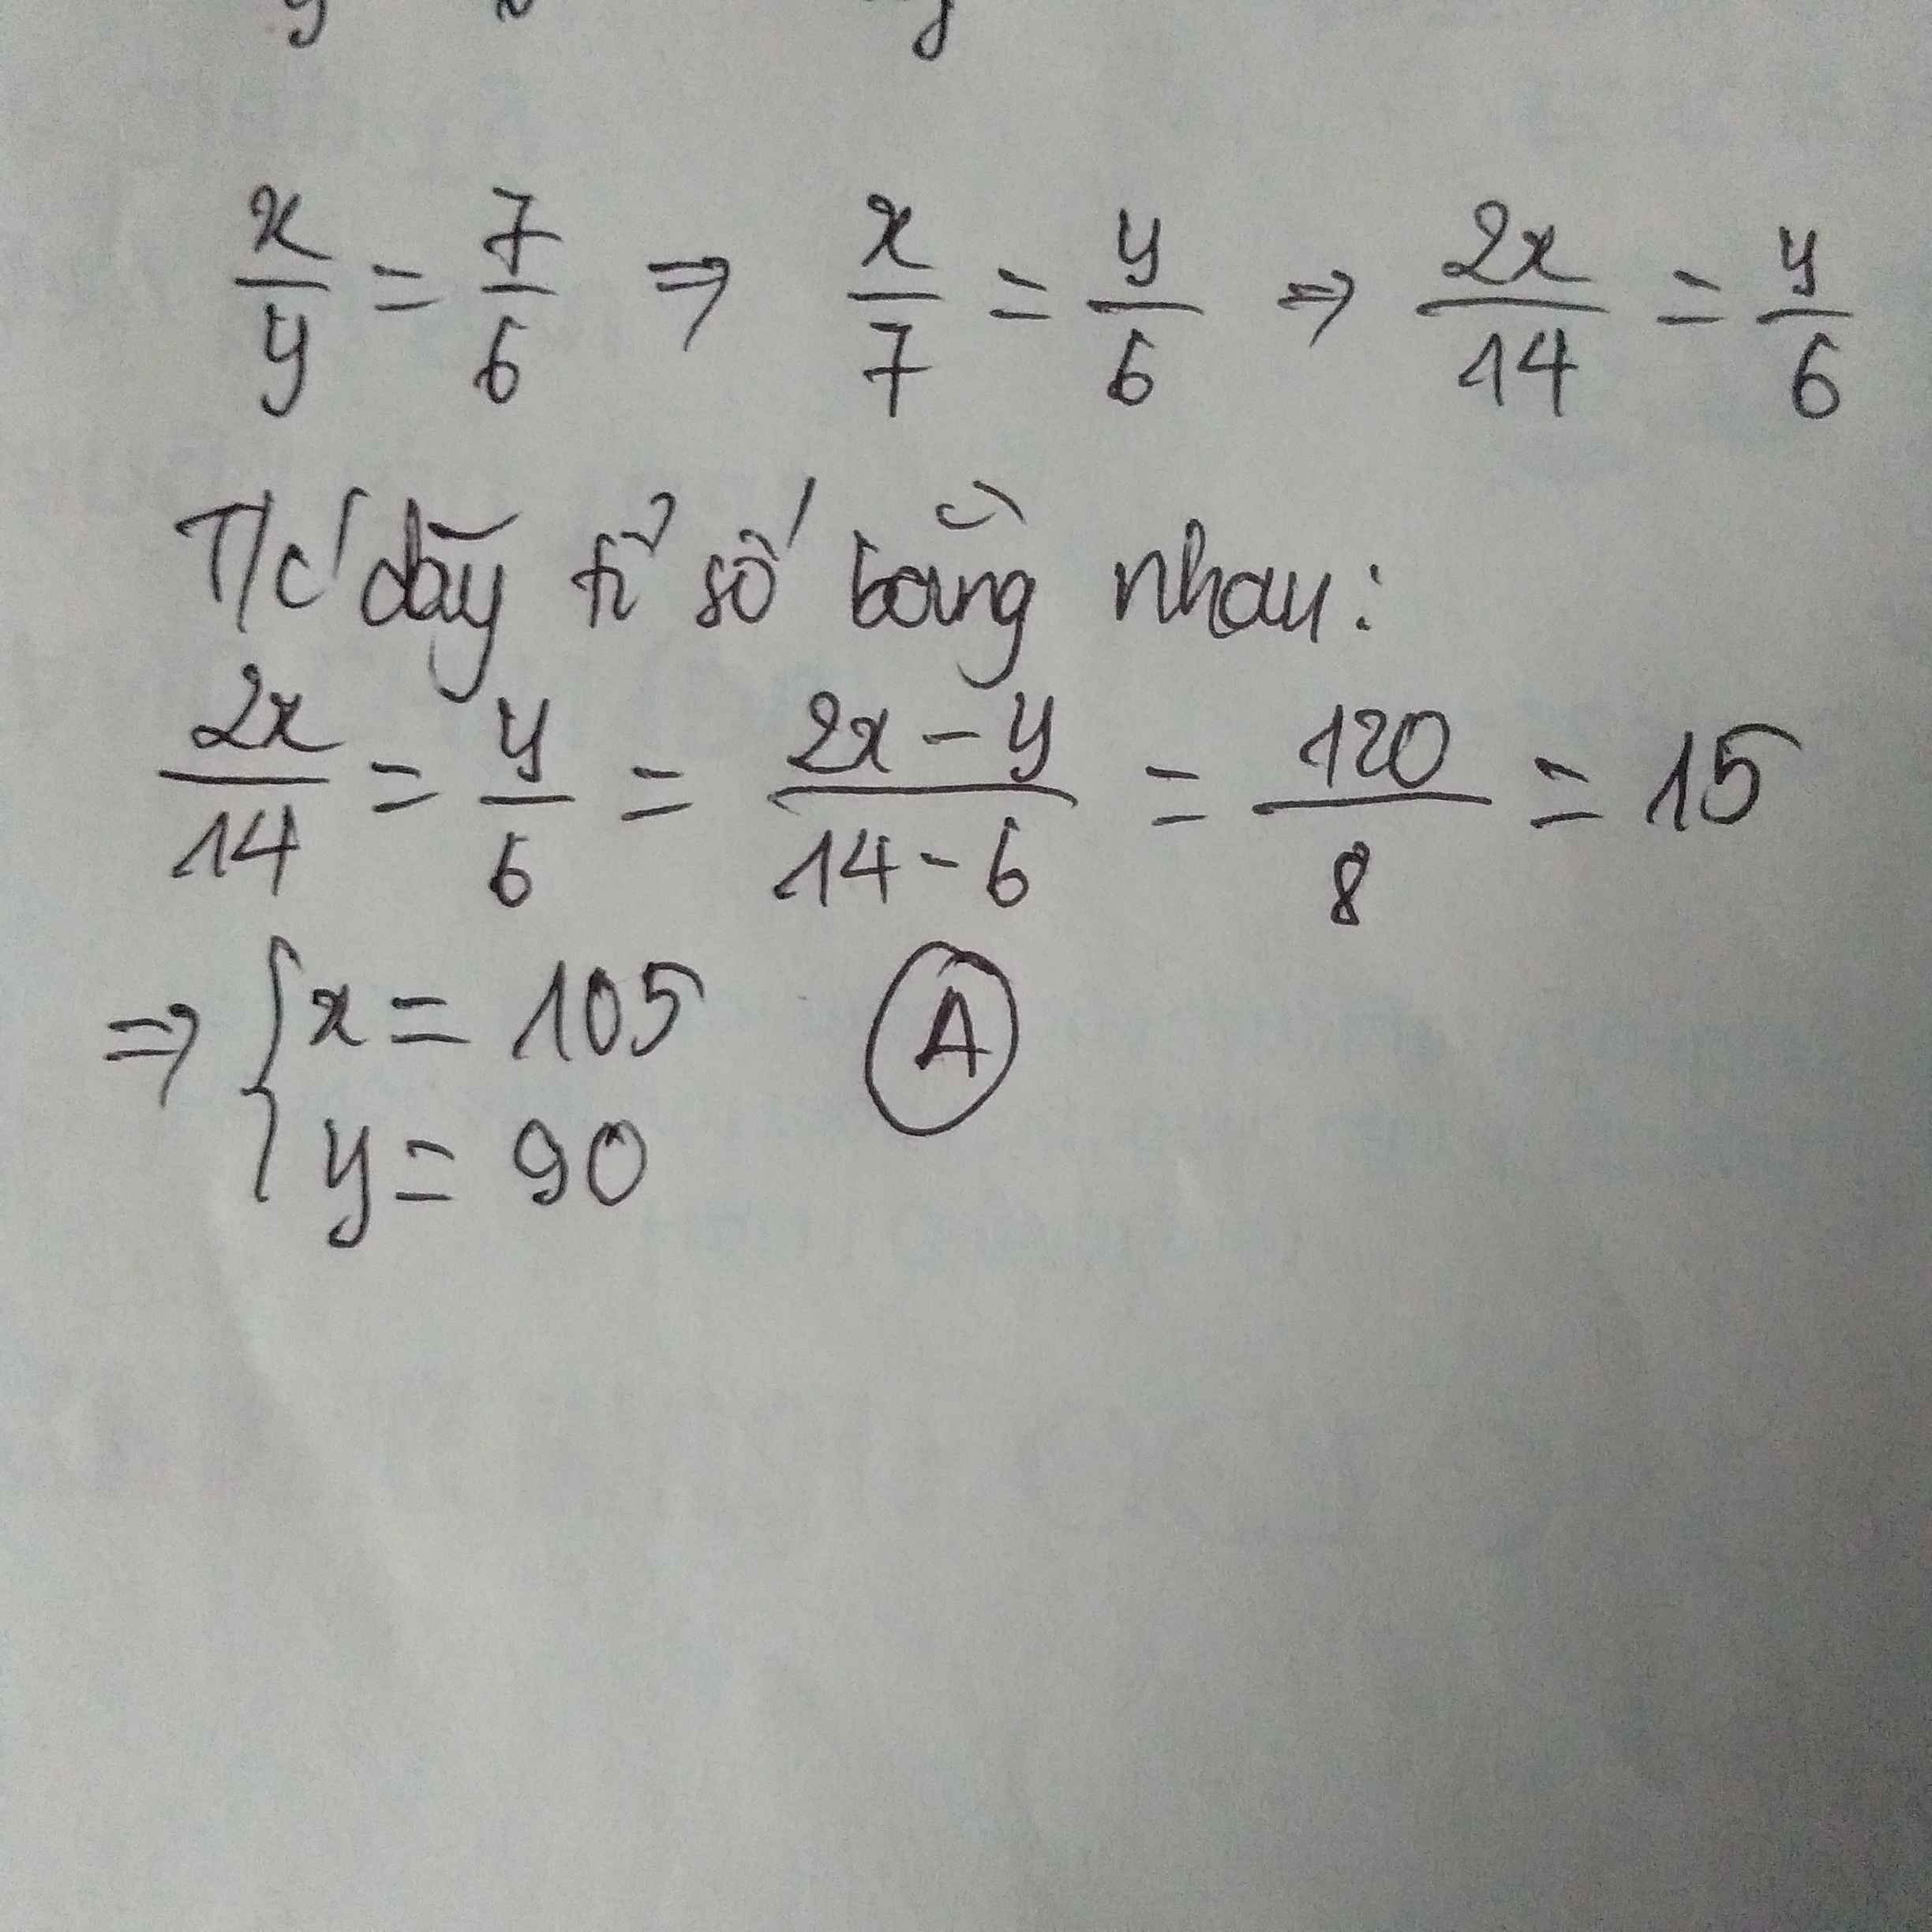 x/y = 7/6 ⇒ x/7 = y/6 ⇒ 2x/14 = y/6
T/c dãy tỉ số bằng nhau:
2x/14 = y/6 = 2x - y/14 - 6 = 120/8 = 15
⇒ { x = 105 A
y = 90